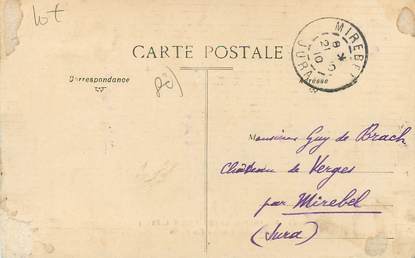 lot
CARTE POSTALE
MIREBEL
JURA
Correspondance
Adresse
Monsieur Guy de Brach
Château de Verges
par Mirebel
(Jura)